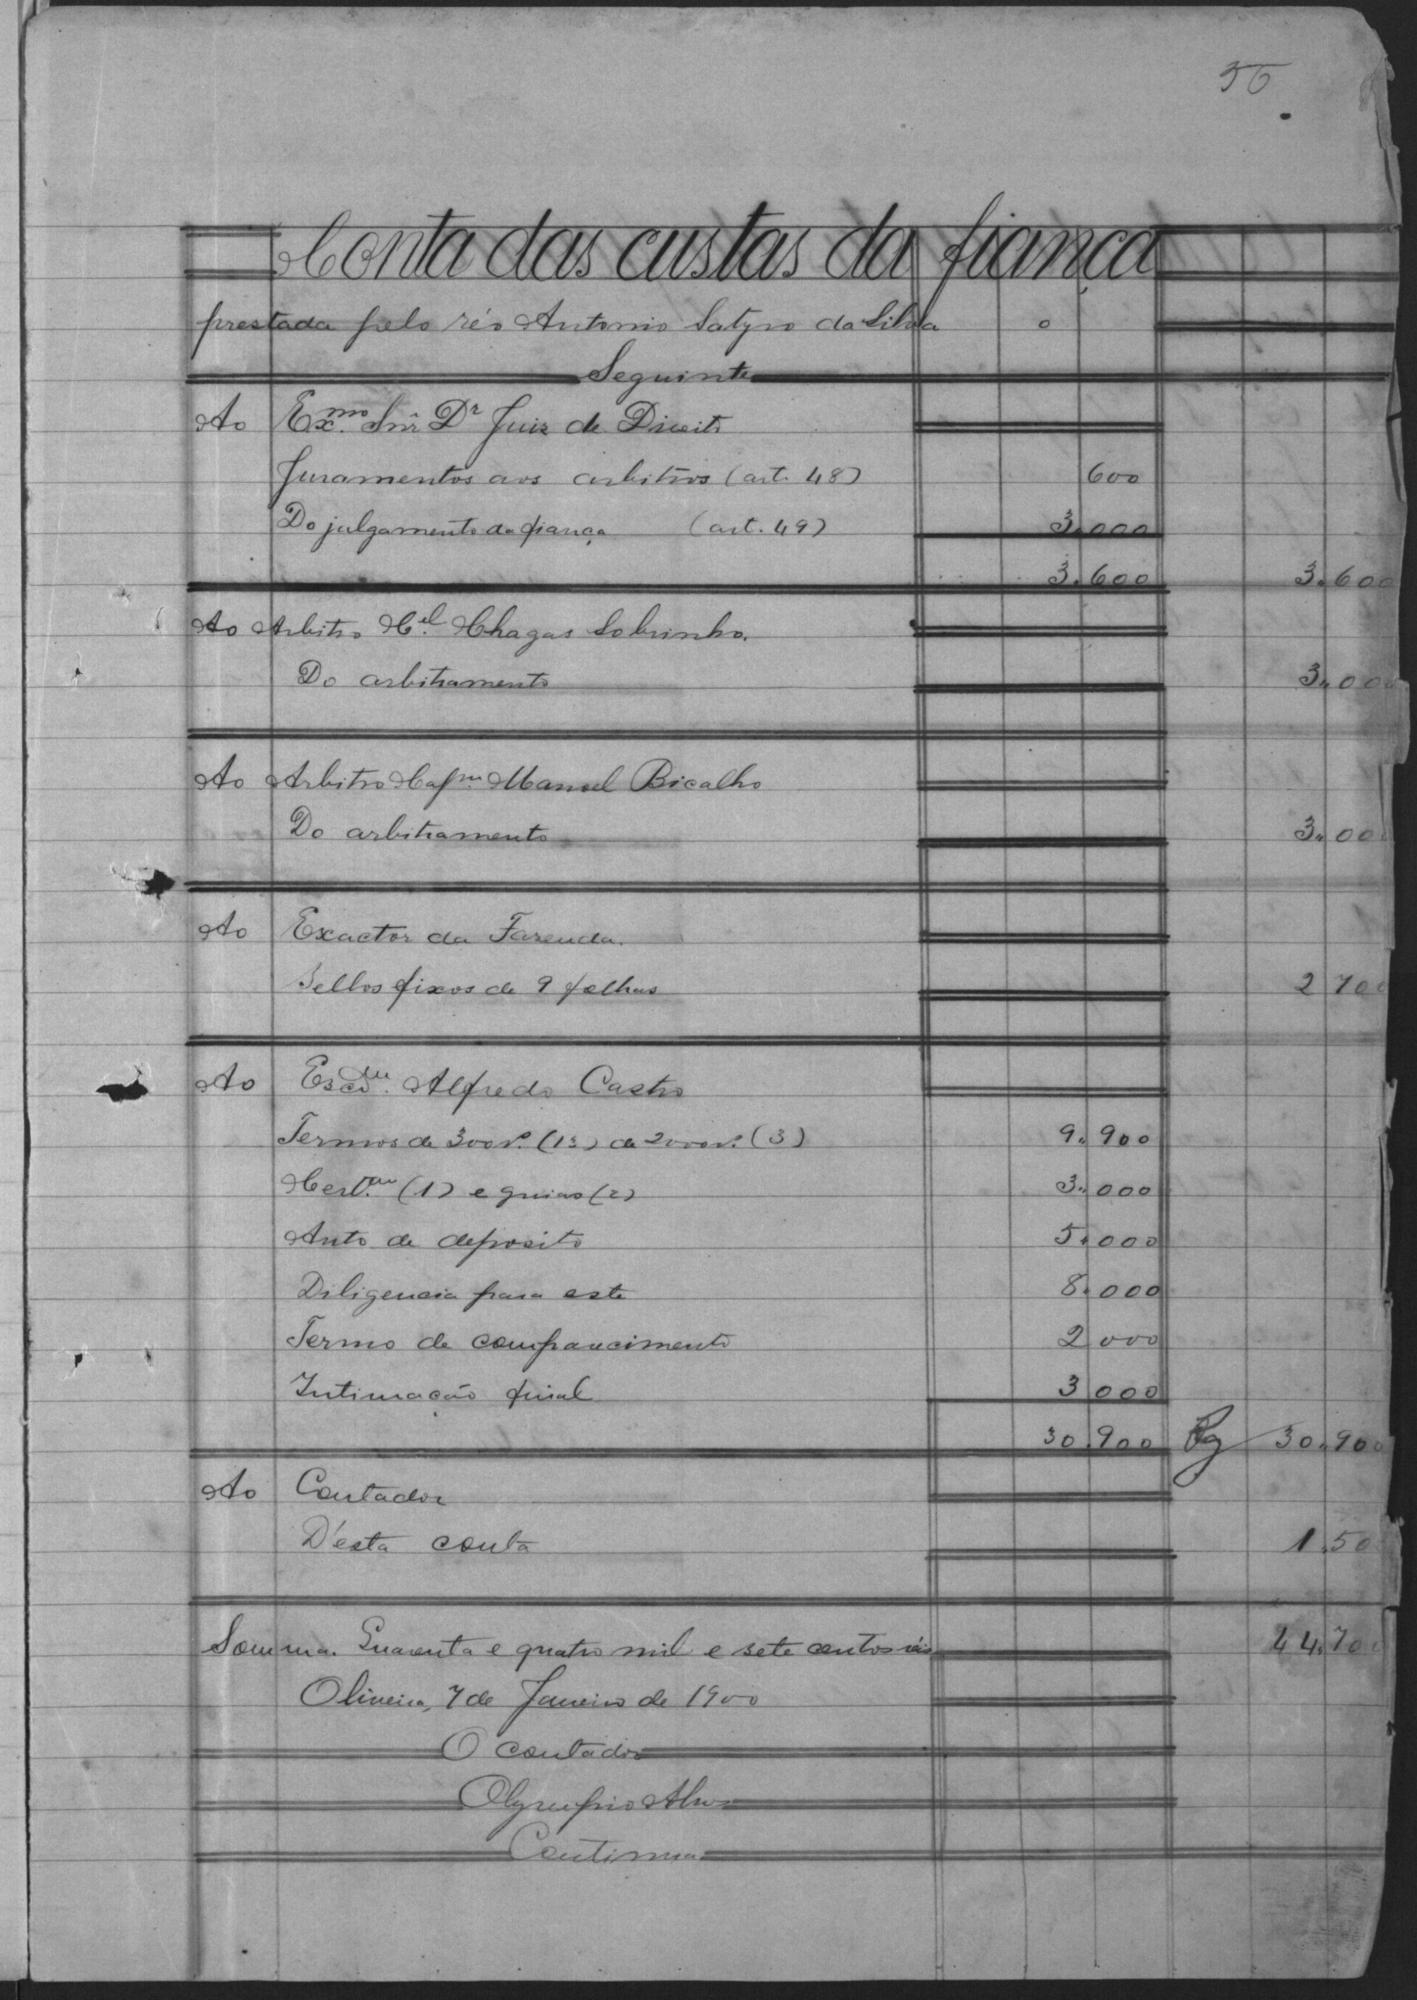 36
Conta das custas da fiança
prestada pelo réo Antonio Satyro da Silva o
Seguinte
Ao Ex.mo Snr Dr Juiz de Direito
Juramentos aos arbitros (art. 48) 600
Do julgamento da fiança (art. 49) 3.000
3.600 3.600
Ao Arbitro Cel. Chagas Sobrinho.
Do arbitramento 3.00
Ao Arbitro Capm. Manoel Bicalho
Do arbitramento 3.00
Ao Exactor da Fazenda.
Sellos fixos de 9 folhas 2 700
Ao Alfredo Castro
Termos de 300 rs. (13) de 2000 rs. (3) 9.900
(1) e guias (2) 3.000
Auto de deposito 5.000
Diligencia para este 8.000
Termo de comparecimento 2 000
Intimação final 3 000
30.900 Pg 30.900
Ao Contador
D'esta conta 1.50
Somma. Quarenta e quatro mil e sete centos réis 44.70
Oliveira, 7 de Janeiro de 1900
O contador
Olympio Alves
Continua